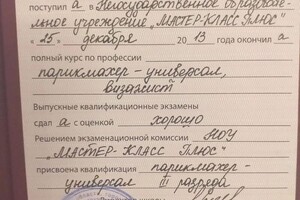 поступил а в Негосударственное образова-
тельное учреждение „МАСТЕР-КЛАСС ПЛЮС"
« 25 » декабря 20 13 года окончил а
полный курс по профессии
парикмахер-универсал,
визажист
Выпускные квалификационные экзамены
сдал а с оценкой хорошо
Решением экзаменационной комиссии НОУ
„МАСТЕР-КЛАСС ПЛЮС"
присвоена квалификация парикмахер-
универсал III разряда